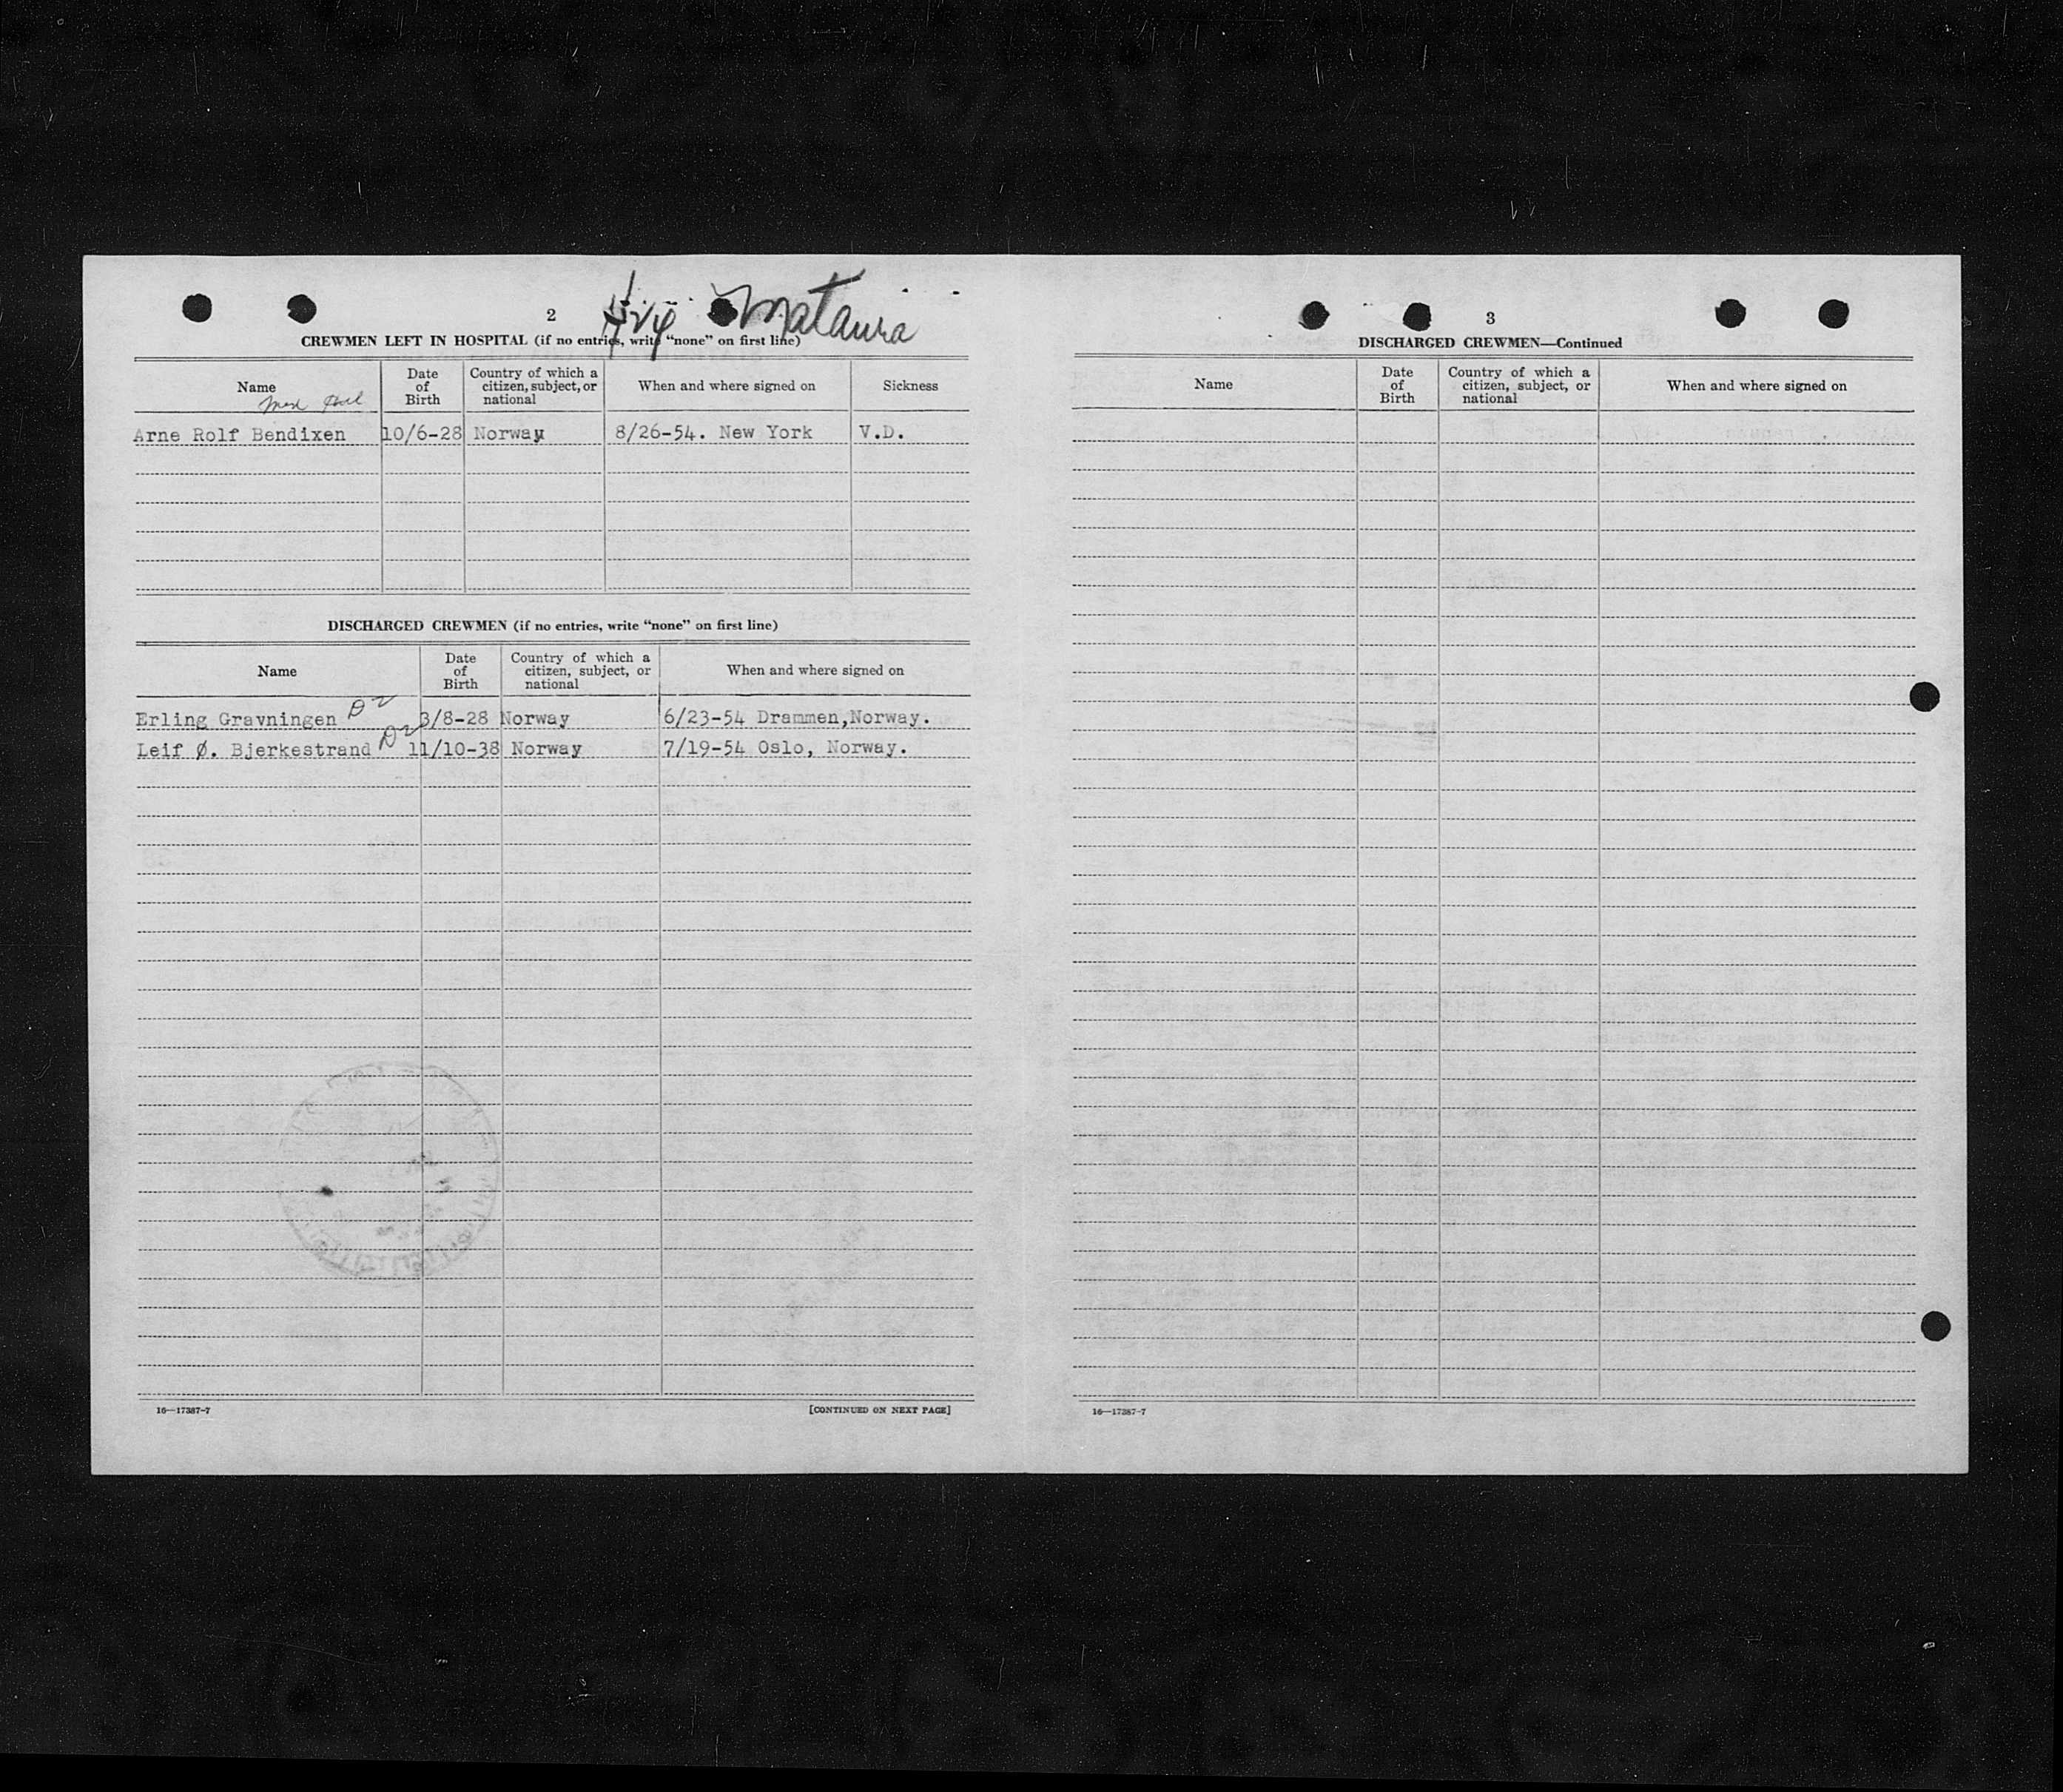 2
Mataura
CREWMEN LEFT IN HOSPITAL (if no entries, write "none" on first line)
Name
Date of Birth
Country of which a citizen, subject, or national
When and where signed on
Sickness
Arne Rolf Bendixen 10/6-28 Norway 8/26-54. New York V.D.
DISCHARGED CREWMEN (if no entries, write "none" on first line)
Name
Date of Birth
Country of which a citizen, subject, or national
When and where signed on
Erling Gravningen D2 3/8-28 Norway 6/23-54 Drammen,Norway.
Leif Ø. Bjerkestrand D2 11/10-38 Norway 7/19-54 Oslo, Norway.
16—17387-7
[CONTINUED ON NEXT PAGE]
3
DISCHARGED CREWMEN—Continued
Name
Date of Birth
Country of which a citizen, subject, or national
When and where signed on
16—17387-7